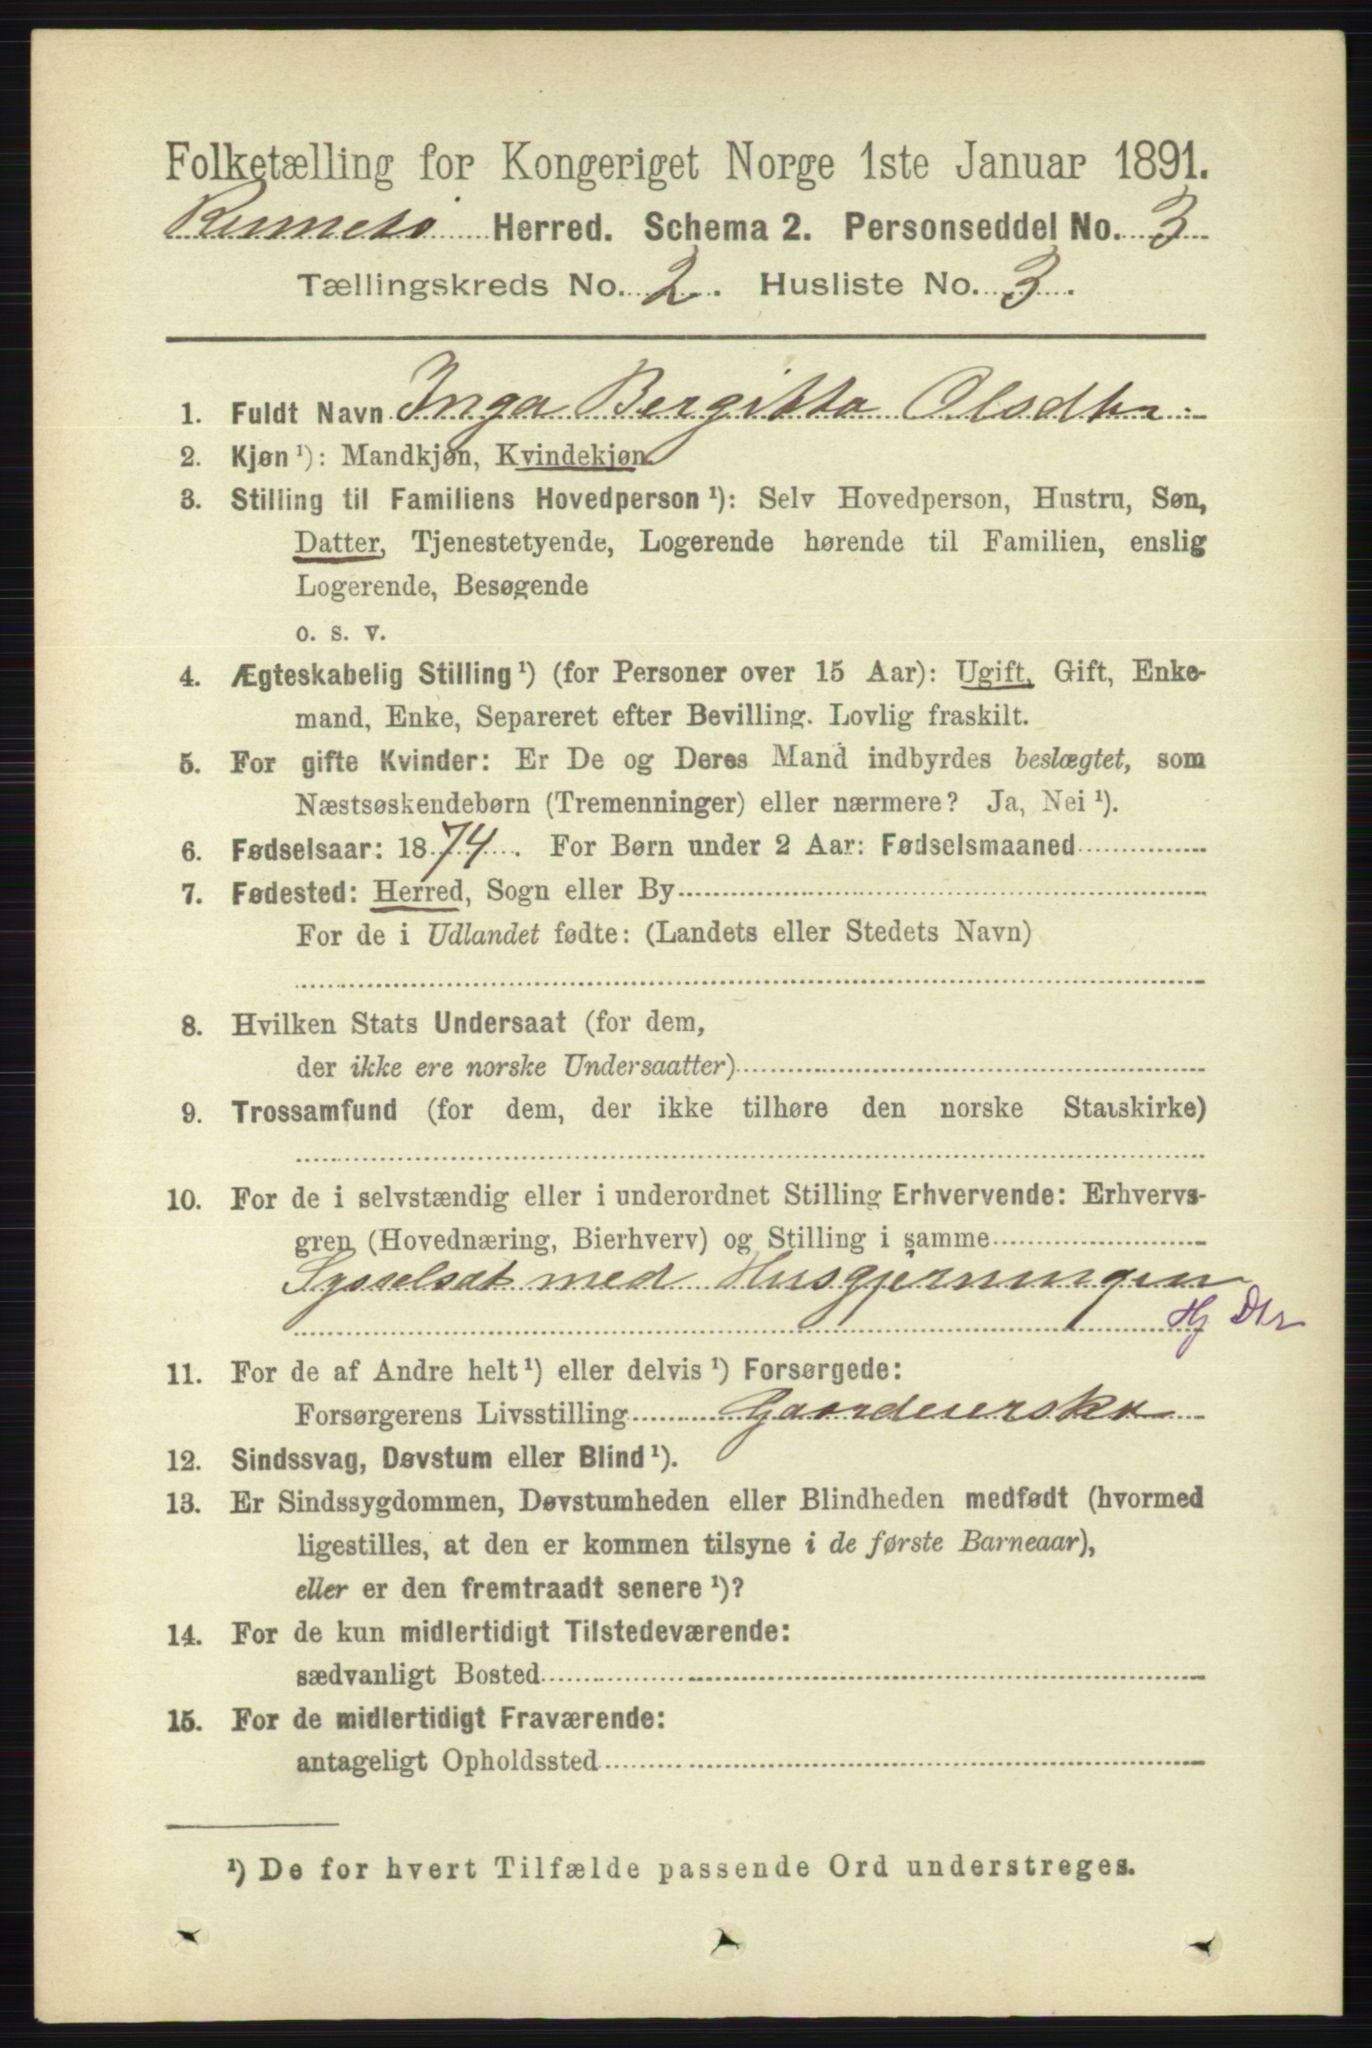 Folketælling for Kongeriget Norge 1ste Januar 1891.
Herred. Schema 2. Personseddel No. 3
Tællingskreds No. 2. Husliste No. 3.
1. Fuldt Navn Inga Bergitta Olsdtr:
2. Kjøn ¹): Mandkjøn, Kvindekjøn.
3. Stilling til Familiens Hovedperson ¹): Selv Hovedperson, Hustru, Søn,
Datter, Tjenestetyende, Logerende hørende til Familien, enslig
Logerende, Besøgende
o. s. v.
4. Ægteskabelig Stilling ¹) (for Personer over 15 Aar): Ugift, Gift, Enke-
mand, Enke, Separeret efter Bevilling. Lovlig fraskilt.
5. For gifte Kvinder: Er De og Deres Mand indbyrdes beslægtet, som
Næstsøskendebørn (Tremenninger) eller nærmere? Ja, Nei ¹).
6. Fødselsaar: 1874. For Børn under 2 Aar: Fødselsmaaned
7. Fødested: Herred, Sogn eller By
For de i Udlandet fødte: (Landets eller Stedets Navn)
8. Hvilken Stats Undersaat (for dem,
der ikke ere norske Undersaatter)
9. Trossamfund (for dem, der ikke tilhøre den norske Statskirke)
10. For de i selvstændig eller i underordnet Stilling Erhvervende: Erhvervs-
gren (Hovednæring, Bierhverv) og Stilling i samme
Sysselsat med Husgjerningen
Hj Dtr
11. For de af Andre helt ¹) eller delvis ¹) Forsørgede:
Forsørgerens Livsstilling
12. Sindssvag, Døvstum eller Blind ¹).
13. Er Sindssygdommen, Døvstumheden eller Blindheden medfødt (hvormed
ligestilles, at den er kommen tilsyne i de første Barneaar),
eller er den fremtraadt senere ¹)?
14. For de kun midlertidigt Tilstedeværende:
sædvanligt Bosted
15. For de midlertidigt Fraværende:
antageligt Opholdssted
¹) De for hvert Tilfælde passende Ord understreges.